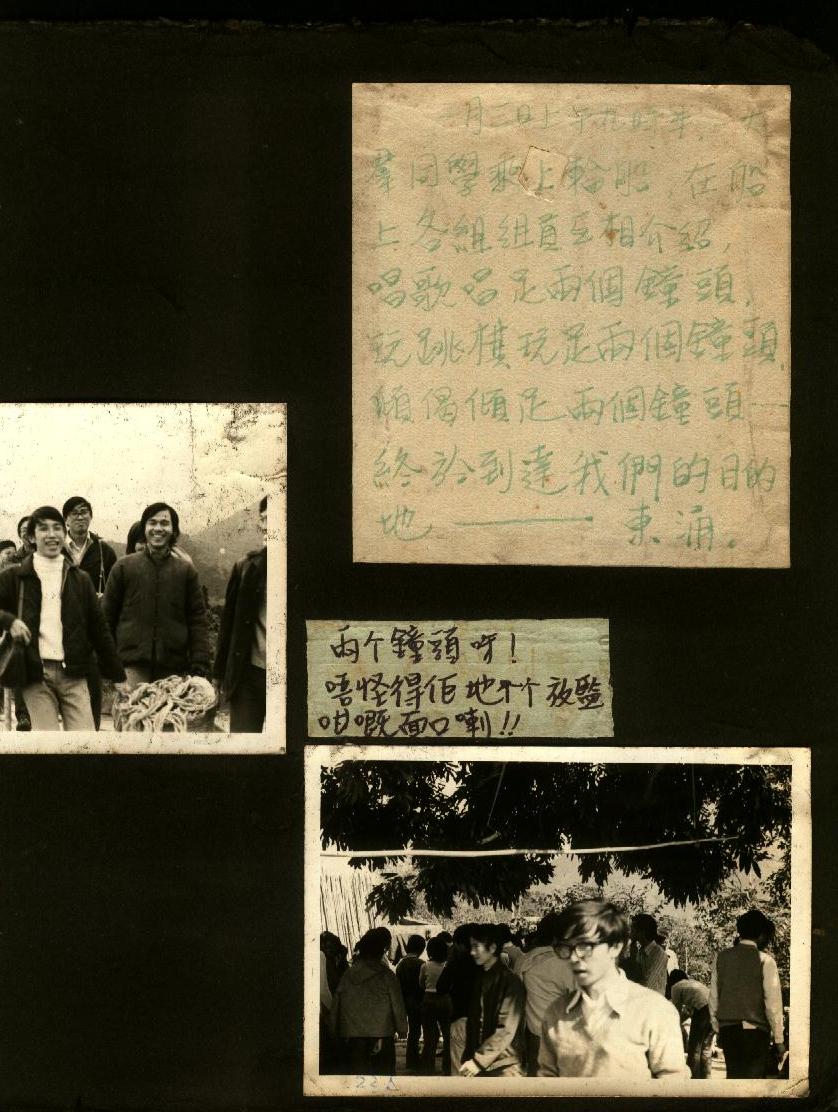 月三日上午九時半，大
羣同學乘上輪船，在船
上各組組員互相介紹，
唱歌唱足兩個鐘頭，
玩跳棋玩足兩個鐘頭，
傾偈傾足兩個鐘頭——
終於到達我們的目的
地————東涌。
兩个鐘頭呀！
唔怪得佢地个个放監
咁嘅面口喇！！